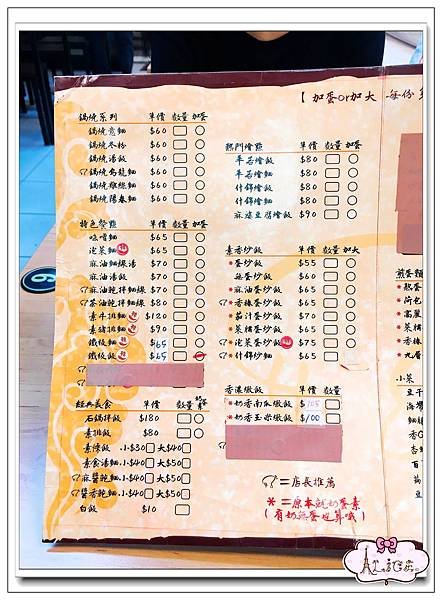 【加蛋or加大 每份
鍋燒系列 單價 數量 加蛋
鍋燒意麵 $60
鍋燒冬粉 $60
鍋燒湯飯 $60
鍋燒烏龍麵 $60
鍋燒雞絲麵 $60
鍋燒陽春麵 $60
特色餐點 單價 數量 加蛋
味噌麵 $65
泡菜麵 $65
麻油麵線湯 $70
麻油湯飯 $70
麻油乾拌麵線 $70
茶油乾拌麵線 $80
素牛排麵 $120
素豬排麵 $90
鐵板麵 $65
鐵板飯 $65
經典美食 單價 數量
石鍋拌飯 $180
素排飯 $80
素燥飯 小$30 大$40
素食湯麵 小$40 大$50
麻醬乾麵 小$40 大$50
醬香乾麵 小$40 大$50
白飯 $10
熱門燴點 單價 數量
羊若燴飯 $80
羊若燴麵 $80
什錦燴飯 $80
什錦燴麵 $80
麻婆豆腐燴飯 $90
素香炒飯 單價 數量 加大
*蛋炒飯 $55
無蛋炒飯 $60
*麻油蛋炒飯 $60
*香椿蛋炒飯 $60
*茄汁蛋炒飯 $65
*菜脯蛋炒飯 $65
*泡菜蛋炒飯 $75
*什錦炒麵 $65
香濃燉飯 單價 數量
*奶香南瓜燉飯 $105
*奶香玉米燉飯 $100
=店長推薦
*=原本就奶蛋素
(有奶無蛋也算哦)
煎蛋類
小菜